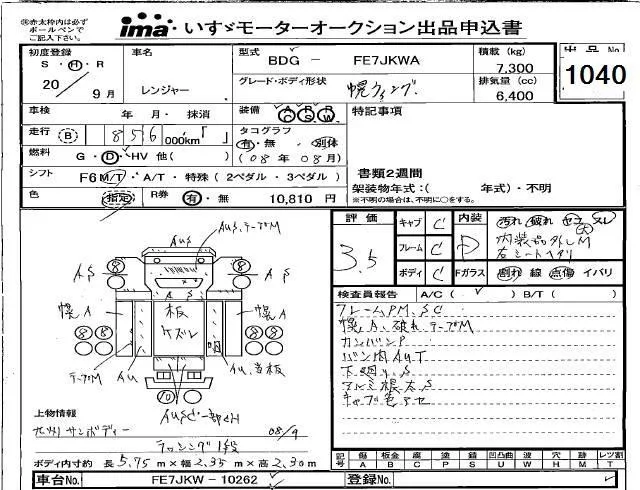 ㊟赤太枠内は必ず
ボールペンで
ご記入下さい。
ima いすゞモーターオークション出品申込書
初度登録
S・H・R
20
9月
車名
レンジャー
型式
BDG - FE7JKWA
グレード・ボディ形状
幌ウィング
積載 (kg)
7,300
排気量 (cc)
6,400
出品No
1040
車検 年 月・ 抹消
装備 A P R C S W
特記事項
走行 B 856 000km「 」
タコグラフ
有・無 別体
(08年 08月)
燃料 G・D・HV 他( )
シフト F6 M/T・A/T・特殊(2ペダル・3ペダル)
書類2週間
架装物年式:( 年式)・不明
※不明の場合は、不明に○をする。
色 指定 R券 有・無 10,810 円
評価
3.5
キャブ C
フレーム C
ボディ C
内装 D
Fガラス
汚れ 破れ コゲ スレ
内装品外しM
右シートヘタリ
割れ 線 点傷 イバリ
検査員報告 A/C( ✓ ) B/T( )
フレームPM、SC
幌A、破れテープM
カンバンP
バン内AUT
下廻りS
アルミ根太S
キャブ色アセ
AUS
AUS、テープM
AS
AS
8
8
AS
幌A
幌A
板
ケズレ
8 8
8 8
テープM
AU
AU、当板
10
AUSC 一部欠H
上物情報
九州サンボディー 08/9
ラッシング1段
ボディ内寸約 長 5.75 m×幅 2.35 m×高 2.30m
記号 傷 板金 腐 塗 錆 凹凸曲 波 穴 跡 レツ割
A B C P S U W H M T
車台No. FE7JKW - 10262
登録No.